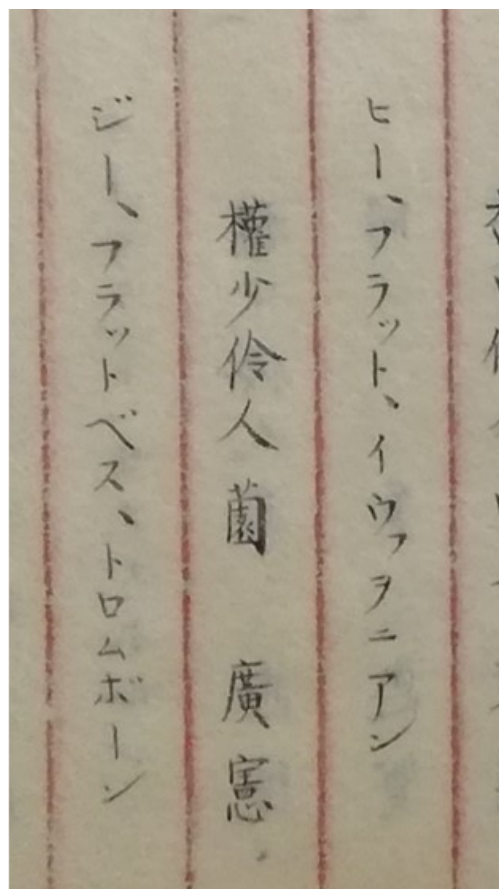 ヒー、フラット、イウフヲニアン
權少伶人薗 廣憲
ジー、フラットベス、トロムボーン